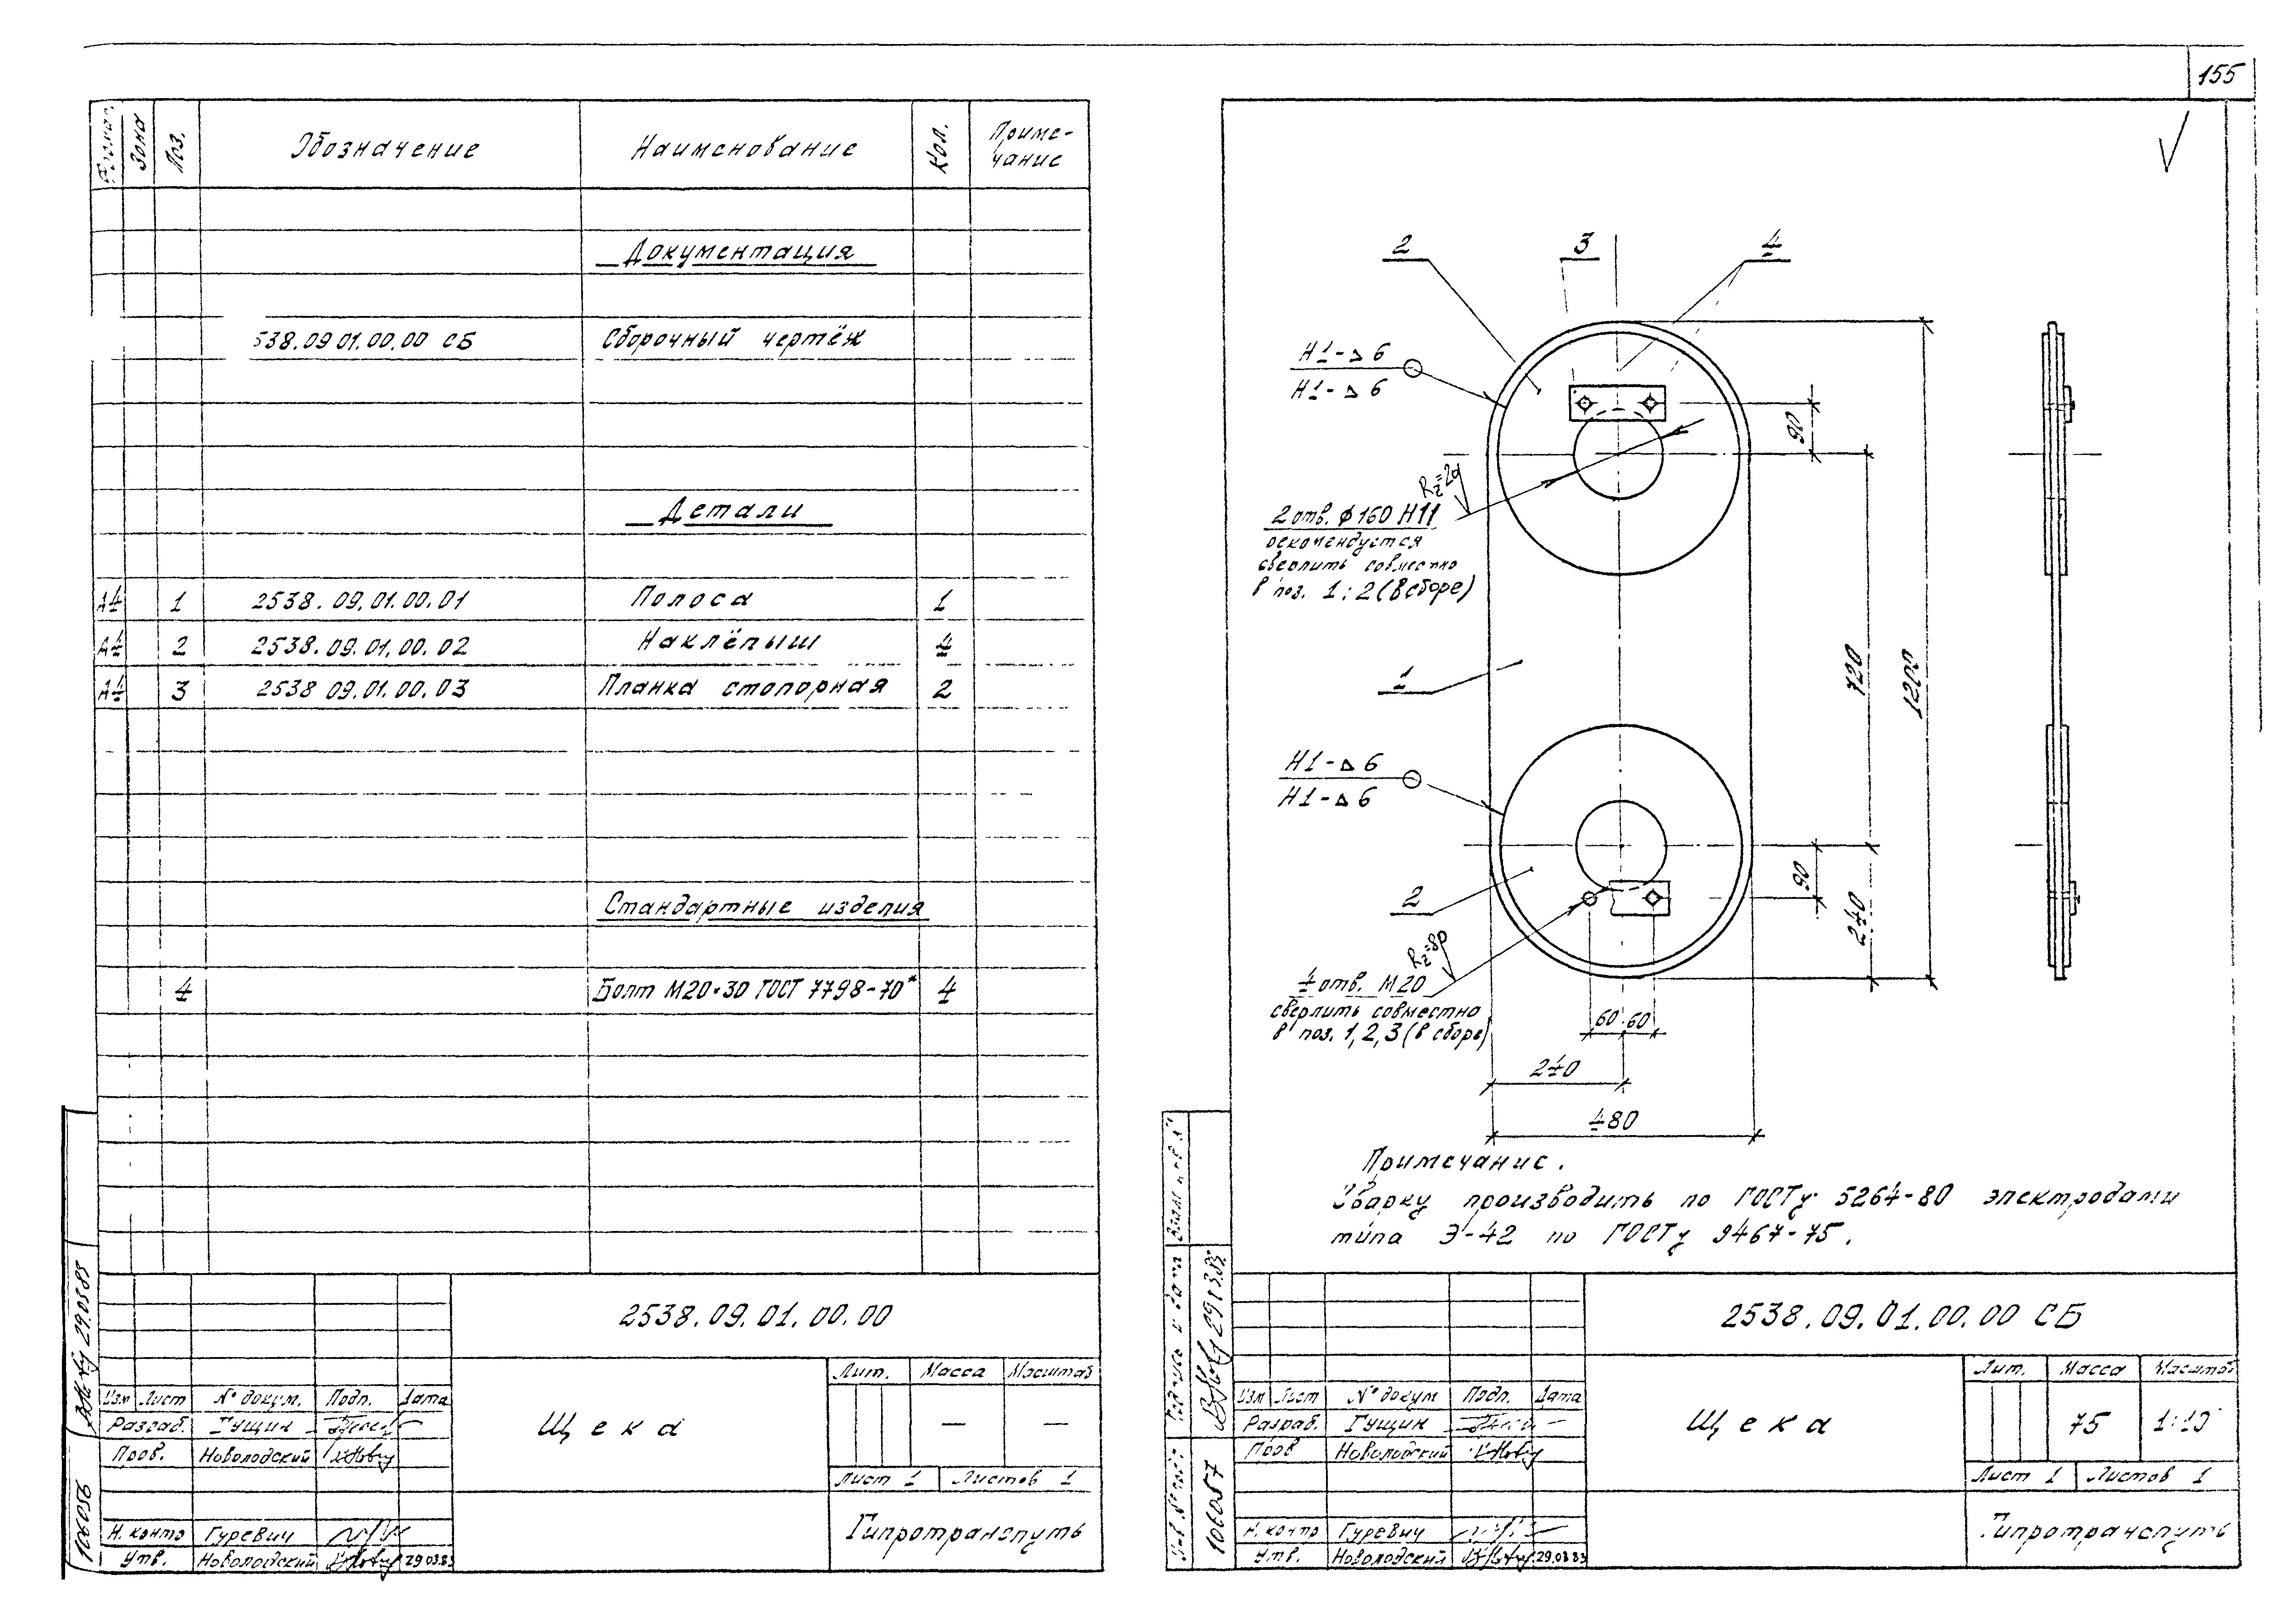 155
Зона
Поз.
Обозначение
Наименование
Кол.
Приме-
чание
Документация
538.09 01.00.00 СБ Сборочный чертёж
Детали
А4 1 2538.09.01.00.01 Полоса 1
А4 2 2538.09.01.00.02 Наклёпыш 4
А4 3 2538 09.01.00.03 Планка стопорная 2
Стандартные изделия
4 Болт М20×30 ГОСТ 7798-70* 4
2538.09.01.00.00
Щека
Лит. Масса Масштаб
— —
Лист 1 Листов 1
Гипротранспуть
Изм Лист № докум. Подп. Дата
Разраб. Гущин
Пров. Новолодский
Н. контр Гуревич
Утв. Новолодский 29 03.83
29.03 83
106056
2
3
4
Н1-⊿6
Н1-⊿6
90
Rz=20
2 отв. ϕ160 Н11
рекомендуется
сверлить совместно
в поз. 1; 2 (в сборе)
1
720
1200
Н1-⊿6
Н1-⊿6
2
90
240
Rz=80
4 отв. М20
сверлить совместно
в поз. 1, 2, 3 (в сборе)
60 60
240
480
Примечание.
Сварку производить по ГОСТу 5264-80 электродами
типа Э-42 по ГОСТу 9467-75.
2538.09.01.00.00 СБ
Щека
Лит. Масса Масштаб
75 1:10
Лист 1 Листов 1
Гипротранспуть
Изм Лист № докум Подп. Дата
Разраб. Гущин
Пров Новолодский
Н. контр Гуревич
Утв. Новолодский 29.03 83
Подпись и дата
106057